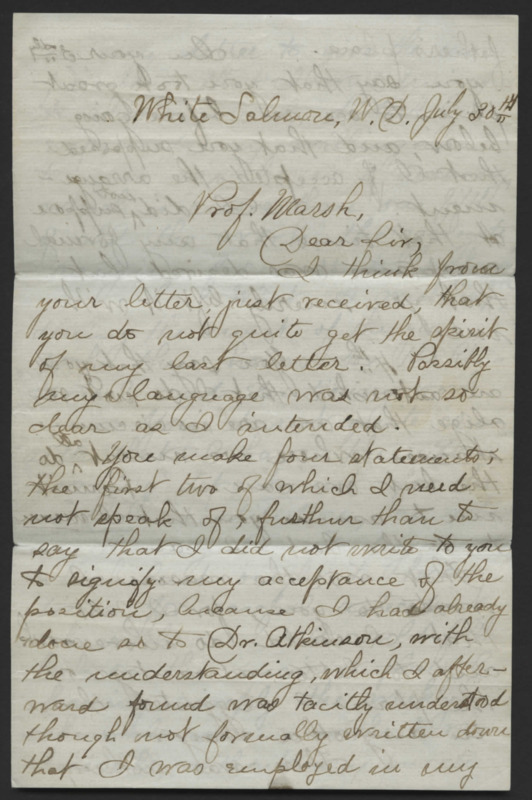 White Salmon, W. D. July 30th
Prof. Marsh,
Dear Sir,
I think from
your letter, just received, that
you do not quite get the spirit
of my last letter. Possibly
my language was not so
clear as I intended.
You make four statements,
the first two of which I need
not speak of furthur than to
say that I did not write to you
to signify my acceptance of the
position, because I had already
done so to Dr. Atkinson, with
the understanding, which I after-
ward found was tacitly understood
though not formally written down
that I was employed in my